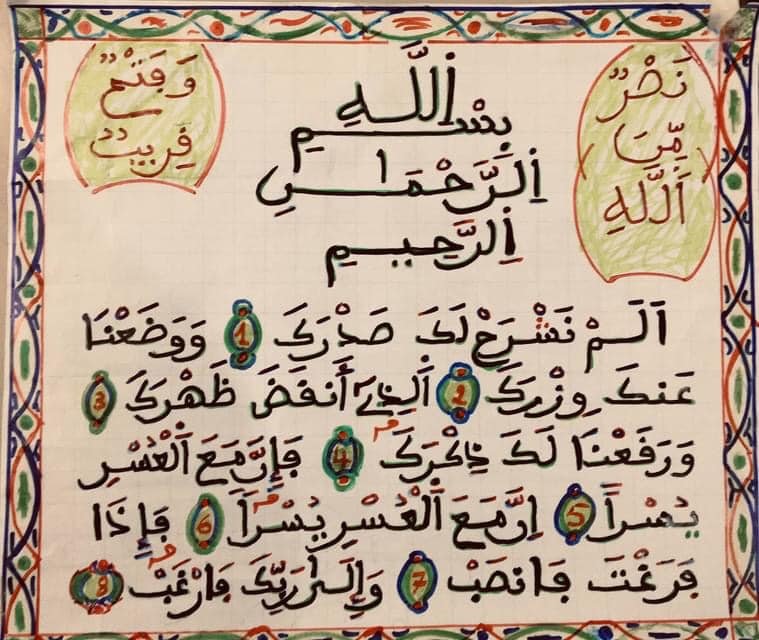 نَصْرٌ
مِّنَ
اَللَّهِ
وَفَتْحٌ
قَرِيبٌ
بِسْمِ اِللَّهِ
اِلرَّحْمَٰنِ
اِلرَّحِيمِ
اَلَمْ نَشْرَحْ لَكَ صَدْرَكَ 1 وَوَضَعْنَا
عَنكَ وِزْرَكَ 2 اَلذِے أَنقَضَ ظَهْرَكَ 3
وَرَفَعْنَا لَكَ ذِكْرَكَ 4 فَإِنَّ مَعَ اَلْعُسْرِ
يُسْراً 5 اِنَّ مَعَ اَلْعُسْرِ يُسْراً 6 فَإِذَا
فَرَغْتَ فَانصَبْ 7 وَإِلَىٰ رَبِّكَ فَارْغَبْ 8